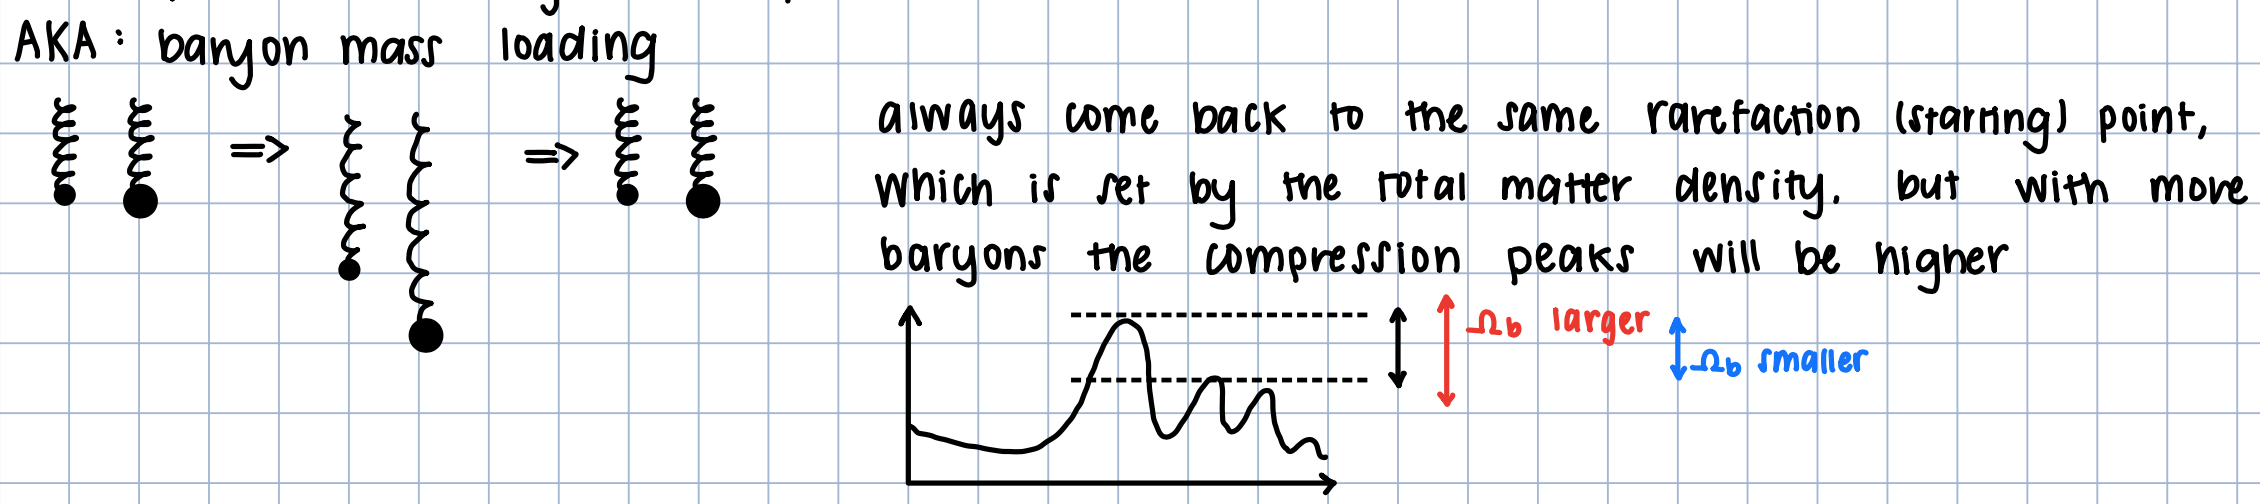 AKA: baryon mass loading
always come back to the same rarefaction (starting) point,
which is set by the total matter density. but with more
baryons the compression peaks will be higher
Ωb larger
Ωb smaller